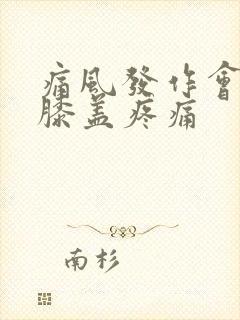 痛風發作會
膝盖疼痛
南杉